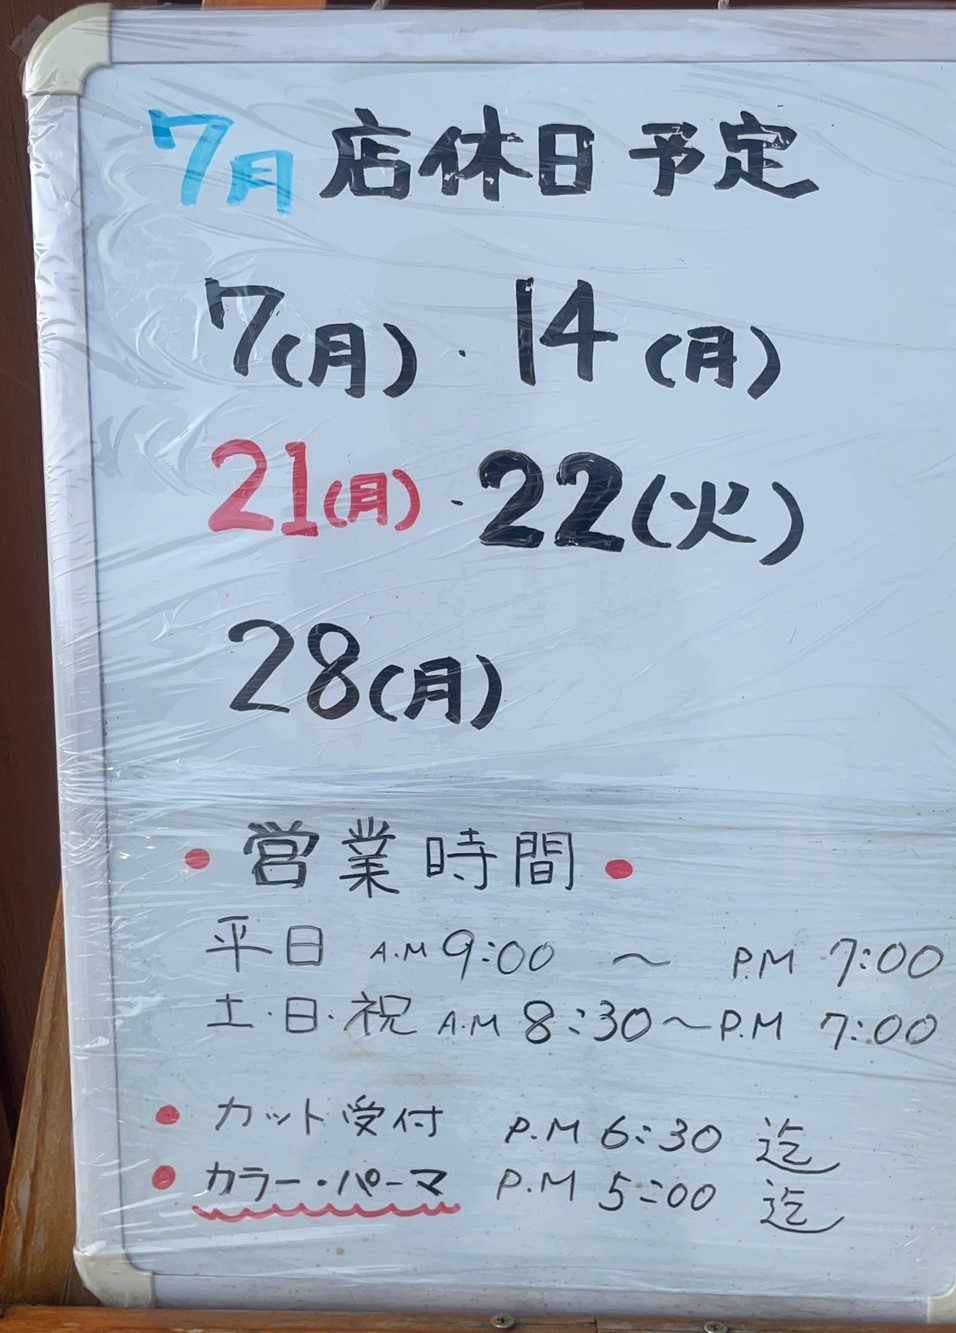 7月 店休日 予定
7(月)・14(月)
21(月)・22(火)
28(月)
• 営業時間 •
平日 A.M 9:00 〜 P.M 7:00
土・日・祝 A.M 8:30〜P.M 7:00
• カット受付 P.M 6:30 迄
• カラー・パーマ P.M 5:00 迄